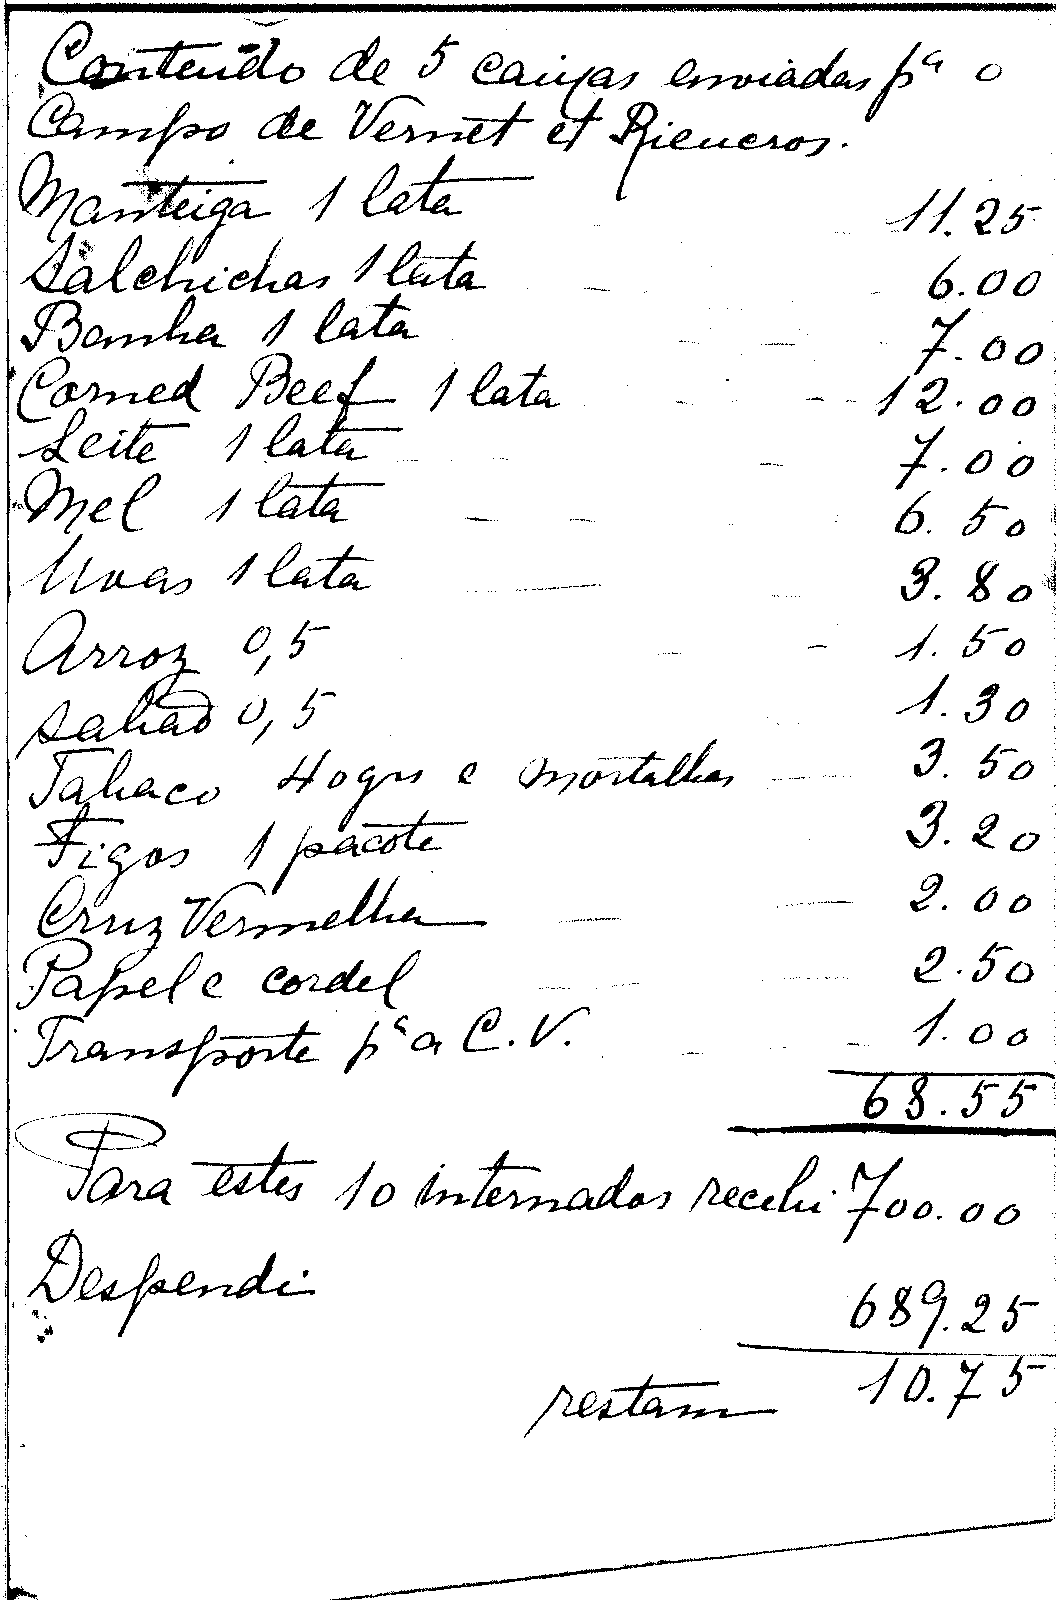 Conteudo de 5 caixas enviadas pª o
Campo de Vernet et Rieucros.
Manteiga 1 lata 11.25
Salchichas 1 lata 6.00
Banha 1 lata 7.00
Corned Beef 1 lata 12.00
Leite 1 lata 7.00
Mel 1 lata 6.50
Uvas 1 lata 3.80
Arroz 0,5 1.50
Sabão 0,5 1.30
Tabaco 40grs e mortalhas 3.50
Figos 1 pacote 3.20
Cruz Vermelha 2.00
Papel e cordel 2.50
Transporte pª a C.V. 1.00
68.55
Para estes 10 internados recebi 700.00
Despendi 689.25
restam 10.75